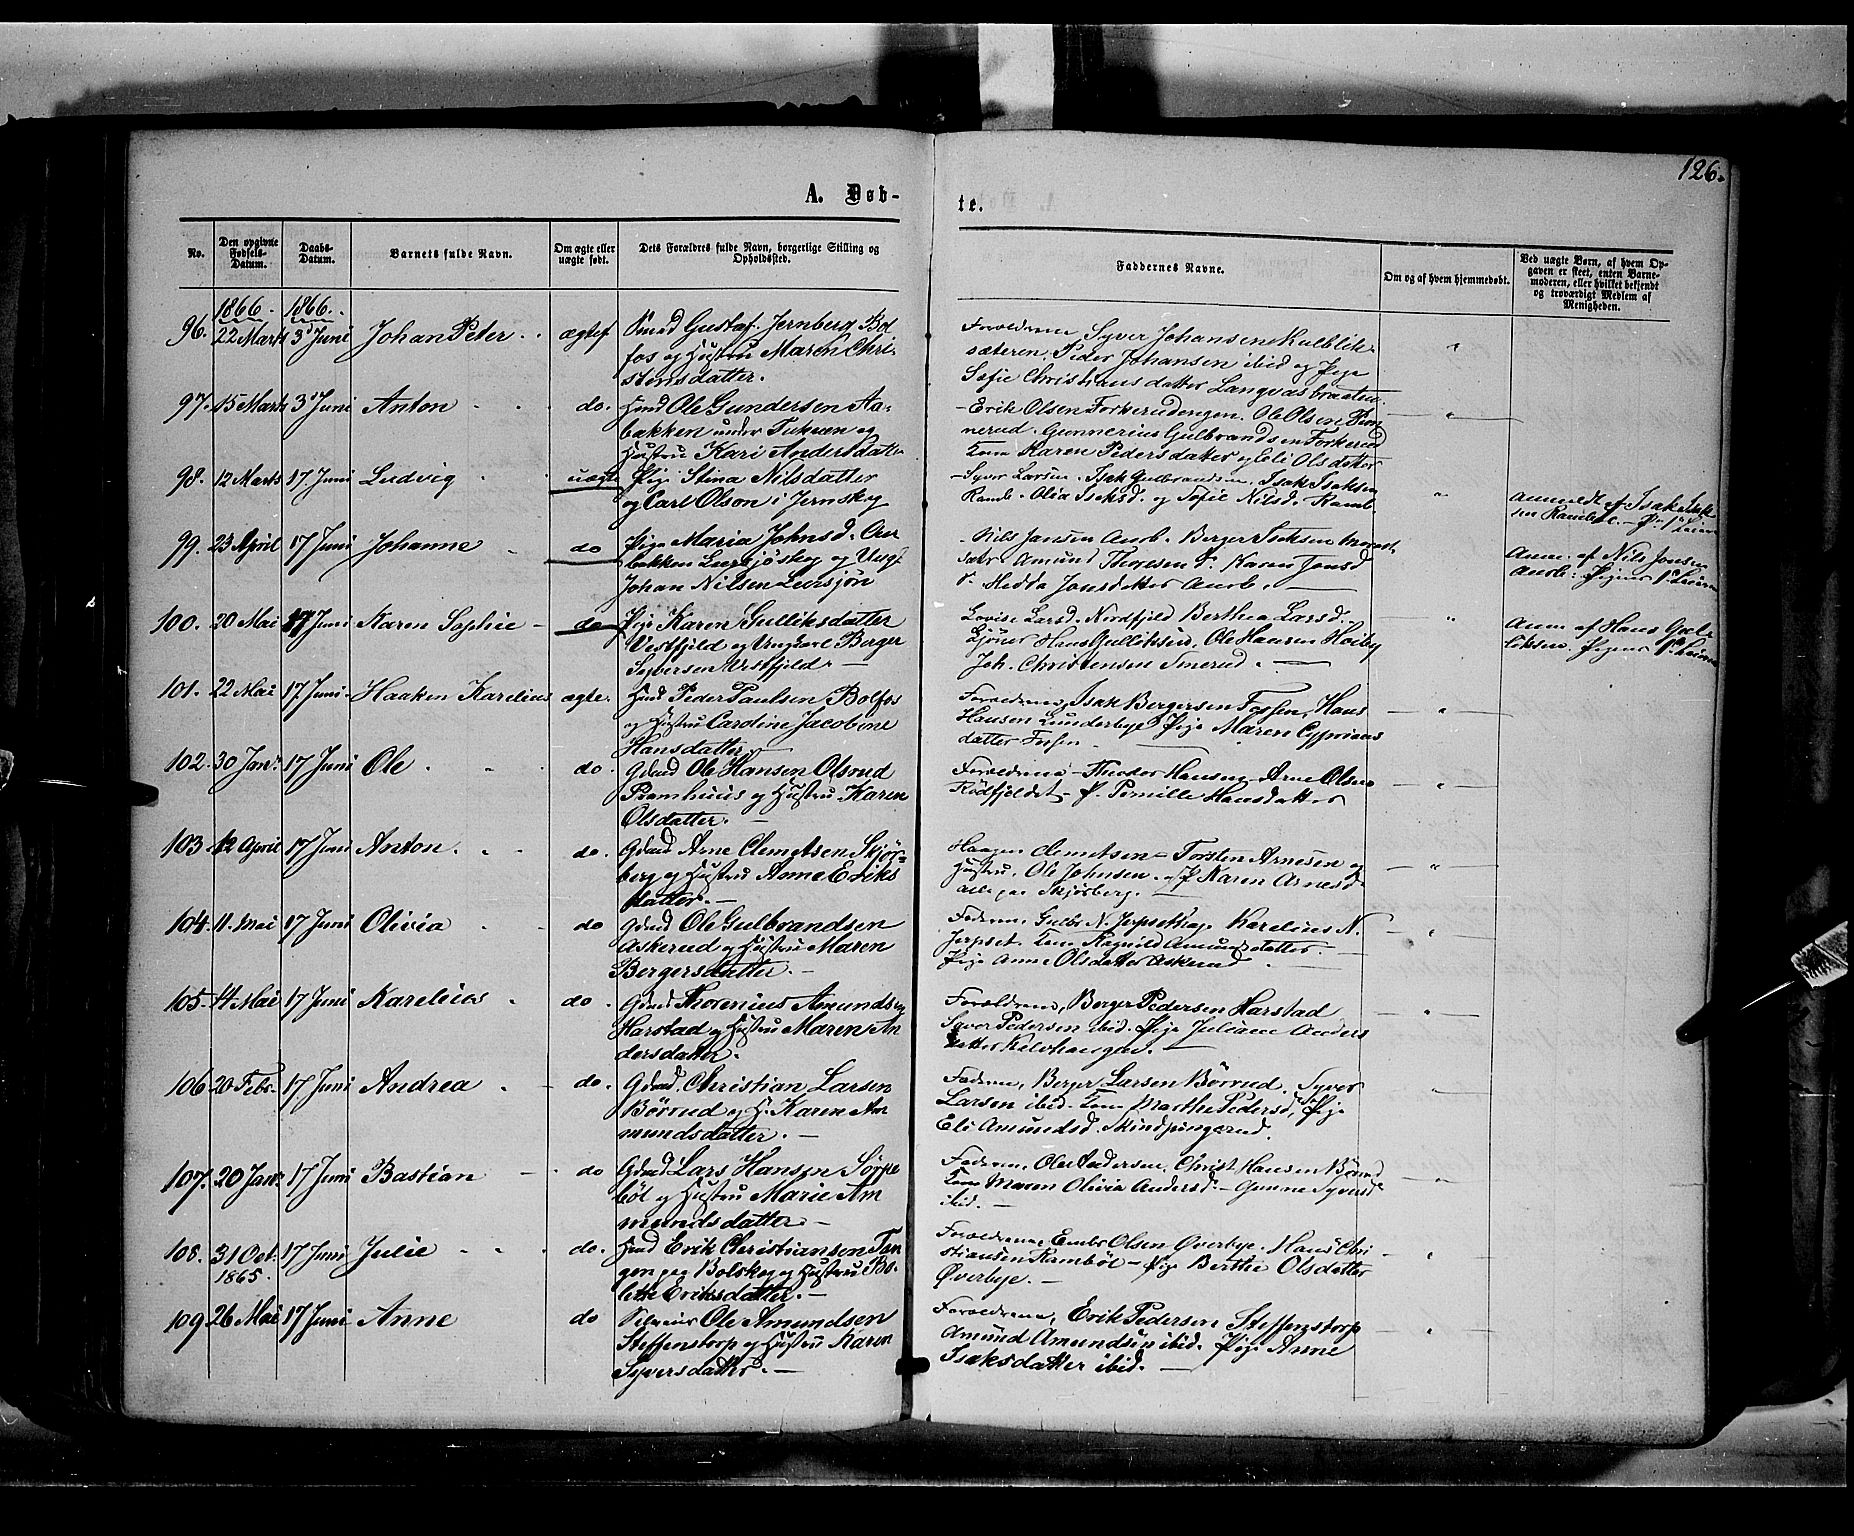 126.
A. Døb-
te.
No.
Den opgivne Fødsels-Datum.
Daabs-Datum.
Barnets fulde Navn.
Om ægte eller uægte født.
Dets Forældres fulde Navn, borgerlige Stilling og Opholdssted.
Faddernes Navne.
Om og af hvem hjemmedøbt.
Ved uægte Børn, af hvem Opgaven er skeet, enten Barnemoderen, eller hvilket bekjendt og troværdigt Medlem af Menigheden.
1866. 1866.
96. 22 Marts 3d Juni Johan Peter ægtef Smed Gustaf Jernberg Bol
fos og Hustru Maren Chri-
stensdatter.
Forældrene Syver Johansen Kulblik
sæteren. Peder Johansen ibid og Pige
Sofie Christiansdatter Langvasbraaten.
97. 15 Marts 3d Juni Anton do. Hmd Ole Gundersen Aa-
bakken under og
Hustru Kari Andersdatter
Erik Olsen Forkerudengen. Ole Olsen
nerud. Gunnerius Gulbrandsen Forkerud
Karen Pedersdatter og Eli Olsdatter
98. 12 Marts 17 Juni Ludvig uægte Pige Stina Nilsdatter
og Carl Olson i Jernskog
Syver Larsen. Isak Gulbrandsen. Isak Isaksen
Ramb. Olia Isaksd. og Sofie Nilsd. Ramb.
Anmeldt af Isak Isak
sen Rambøl.
99. 23 April 17 Juni Johanne do Pige Maria Johnsd.
bakken og Ungk
Johan Nilsen
Nils Jansen Aurb. Berger Isaksen
Amund Thoresen Karen Jonsd
Hedda Jonsdatter Aurb.
Anm. af Nils Jonsen
Aurb. Pigens 1ste
100. 20 Mai 17 Juni Karen Sophie do Pige Karen Gulliksdatter
Vestfjeld og Ungkarl Berger
Syversen Vestfjeld.
Lovise Larsd. Nordfjeld Berthea Larsd.
Hans Gulliksen. Ole Hansen Høiby
Joh. Christensen Smerud.
Anm. af Hans Gul-
liksen. Pigens 1ste
101. 22 Mai 17 Juni Haaken Karelius ægte. Hmd Peder Paulsen Bolfos
og Hustru Caroline Jacobine
Hansdatter
Forældrene, Isak Bergersen Fossen, Hans
Hansen Lunderbye. Pige Maren Cyprians
datter Fossen
102. 30 Janr. 17 Juni Ole do. Gdmd Ole Hansen Olsrud
Pramhuus og Hustru Karen
Olsdatter.
Forældrene Theodor Hansen. Arne Olsen
Rødfjeldet P. Pernille Hansdatter
103. 12 April 17 Juni Anton. do. Gdmd Arne Clemetsen Skjør-
berg og Hustru Anne Eriks
datter.
Haagen Clemetsen Torsten Arnesen og
Hustru. Ole Johnsen P Karen Arnesd
alle paa Skjørberg.
104. 11. Mai 17 Juni Olivia do Gdmd Ole Gulbrandsen
Askerud og Hustru Maren
Bergersdatter.
Faderen, Gulbr. N. Jerpset Karelius N.
Jerpset. Ragnild Amundsdatter.
Pige Anne Olsdatter Askerud
105. 14 Mai 17 Juni Karelius do. Gdmd Thorenius Amundsen
Harstad og Hustru Maren An
dersdatter.
Forældrene, Berger Pedersen Harstad
Syver Pedersen ibid. Pige Juliane Anders
datter
106 20 Febr. 17 Juni Andrea do. Gdmd. Christian Larsen
Børrud og H. Karen Am
mundsdatter.
Faderen, Berger Larsen Børrud. Syver
Larsen ibid. Marthe Pedersd, Pige
Eli Amundsd. Skindpungrud.
107. 20 Janr. 17 Juni Bastian do Gdmd Lars Hansen Sørpe
bøl og Hustru Marie Am
mundsdatter
Faderen, Ole Pedersen. Christ. Hansen Børrud
Maren Olivia Andersd. Gunne Syversd
ibid.
108. 31 Oct. 17 Juni Julie do. Hmd Erik Christiansen Tan
gen paa Bolskog og Hustru Bo-
1865. lette Eriksdatter.
Forældrene, Embr Olsen Øverbye. Hans Chri
stiansen Rambøl Pige Berthe Olsdatter
Øverbye.
109 26 Mai 17 Juni Anne do Selveier Ole Amundsen
Steffenstorp og Hustru Karen
Syversdatter.
Forældrene, Erik Pedersen Steffenstorp
Amund Amundsen ibid. Pige Anne
Isaksdatter ibid.